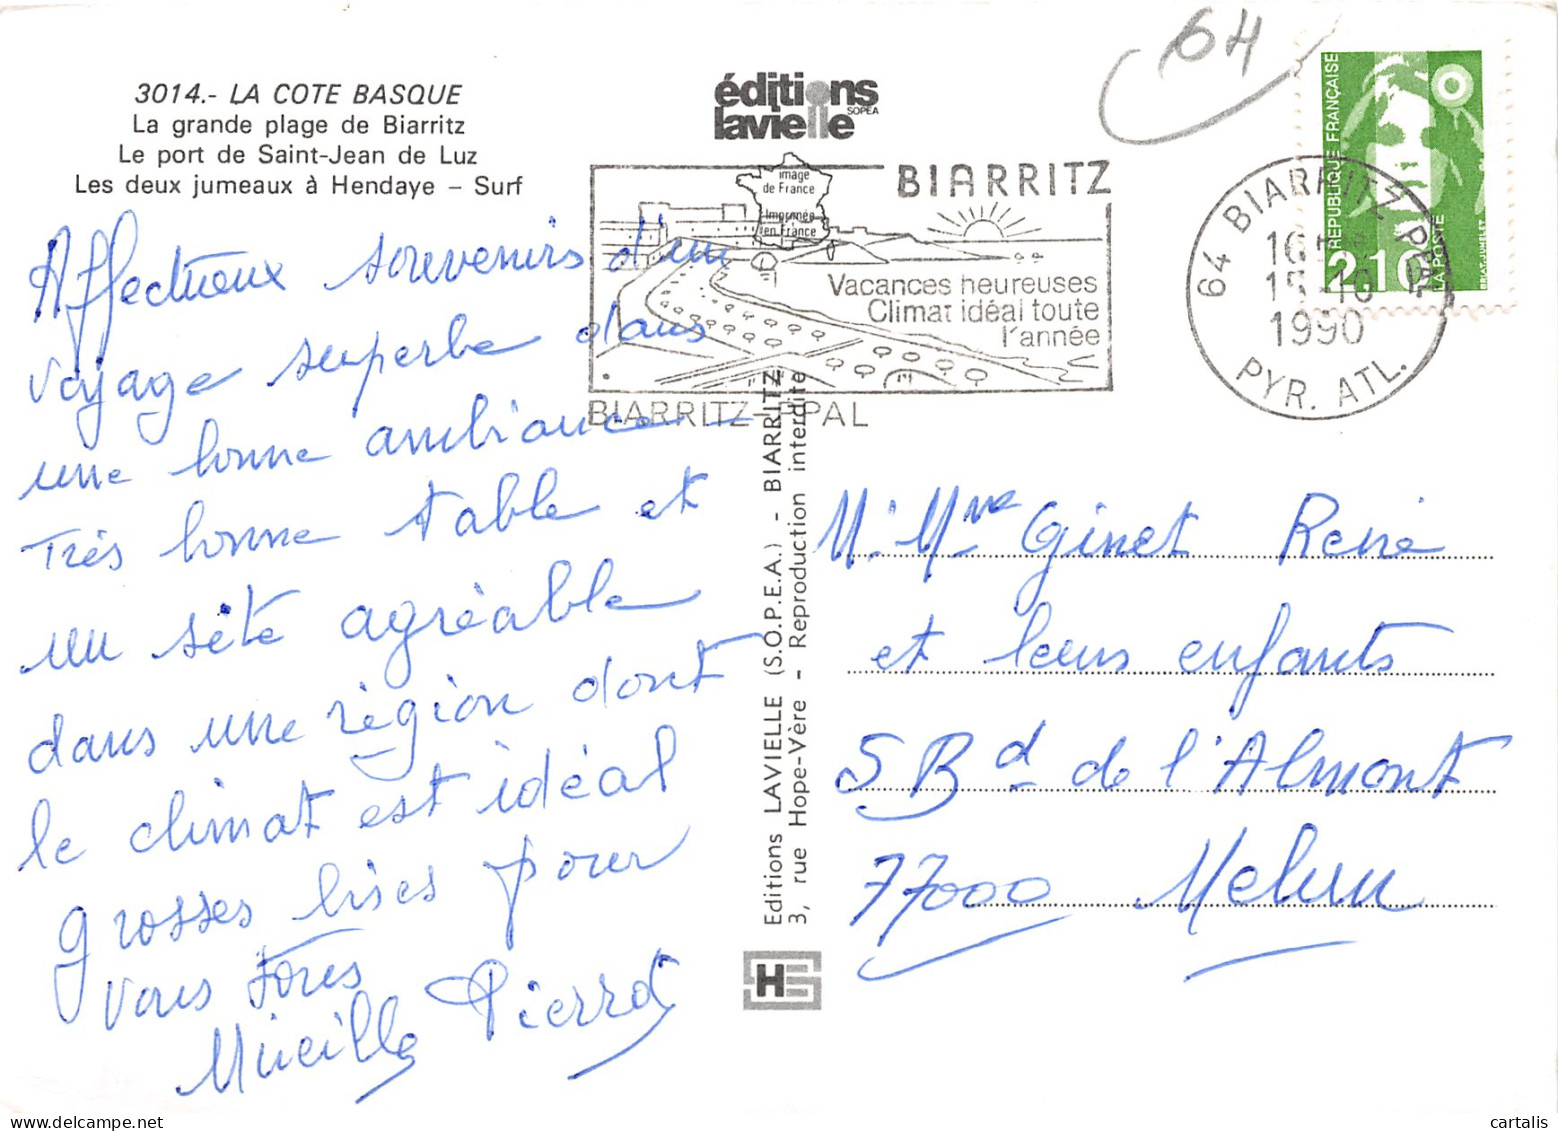 64
3014.- LA COTE BASQUE
La grande plage de Biarritz
Le port de Saint-Jean de Luz
Les deux jumeaux à Hendaye – Surf
éditions
lavielle
SOPEA
image
de France
Imprimée
en France
BIARRITZ
Vacances heureuses
Climat idéal toute
l'année
BIARRITZ-PPAL
RÉPUBLIQUE FRANÇAISE
2,10
LA POSTE
BRIAT-JUMELET
64 BIARRITZ PPAL
16
15-10
1990
PYR. ATL.
Affectueux souvenirs d'un
voyage superbe dans
une bonne ambiance –
Très bonne table et
un sété agréable
dans une région dont
le climat est idéal
grosses bises pour
vous tous
Mireille Pierrot
Editions LAVIELLE (S.O.P.E.A.) - BIARRITZ
3, rue Hope-Vère - Reproduction interdite
HS
M. Mme Ginet René
et leurs enfants
5 Bd de l'Almont
77000 Melun
cartalis